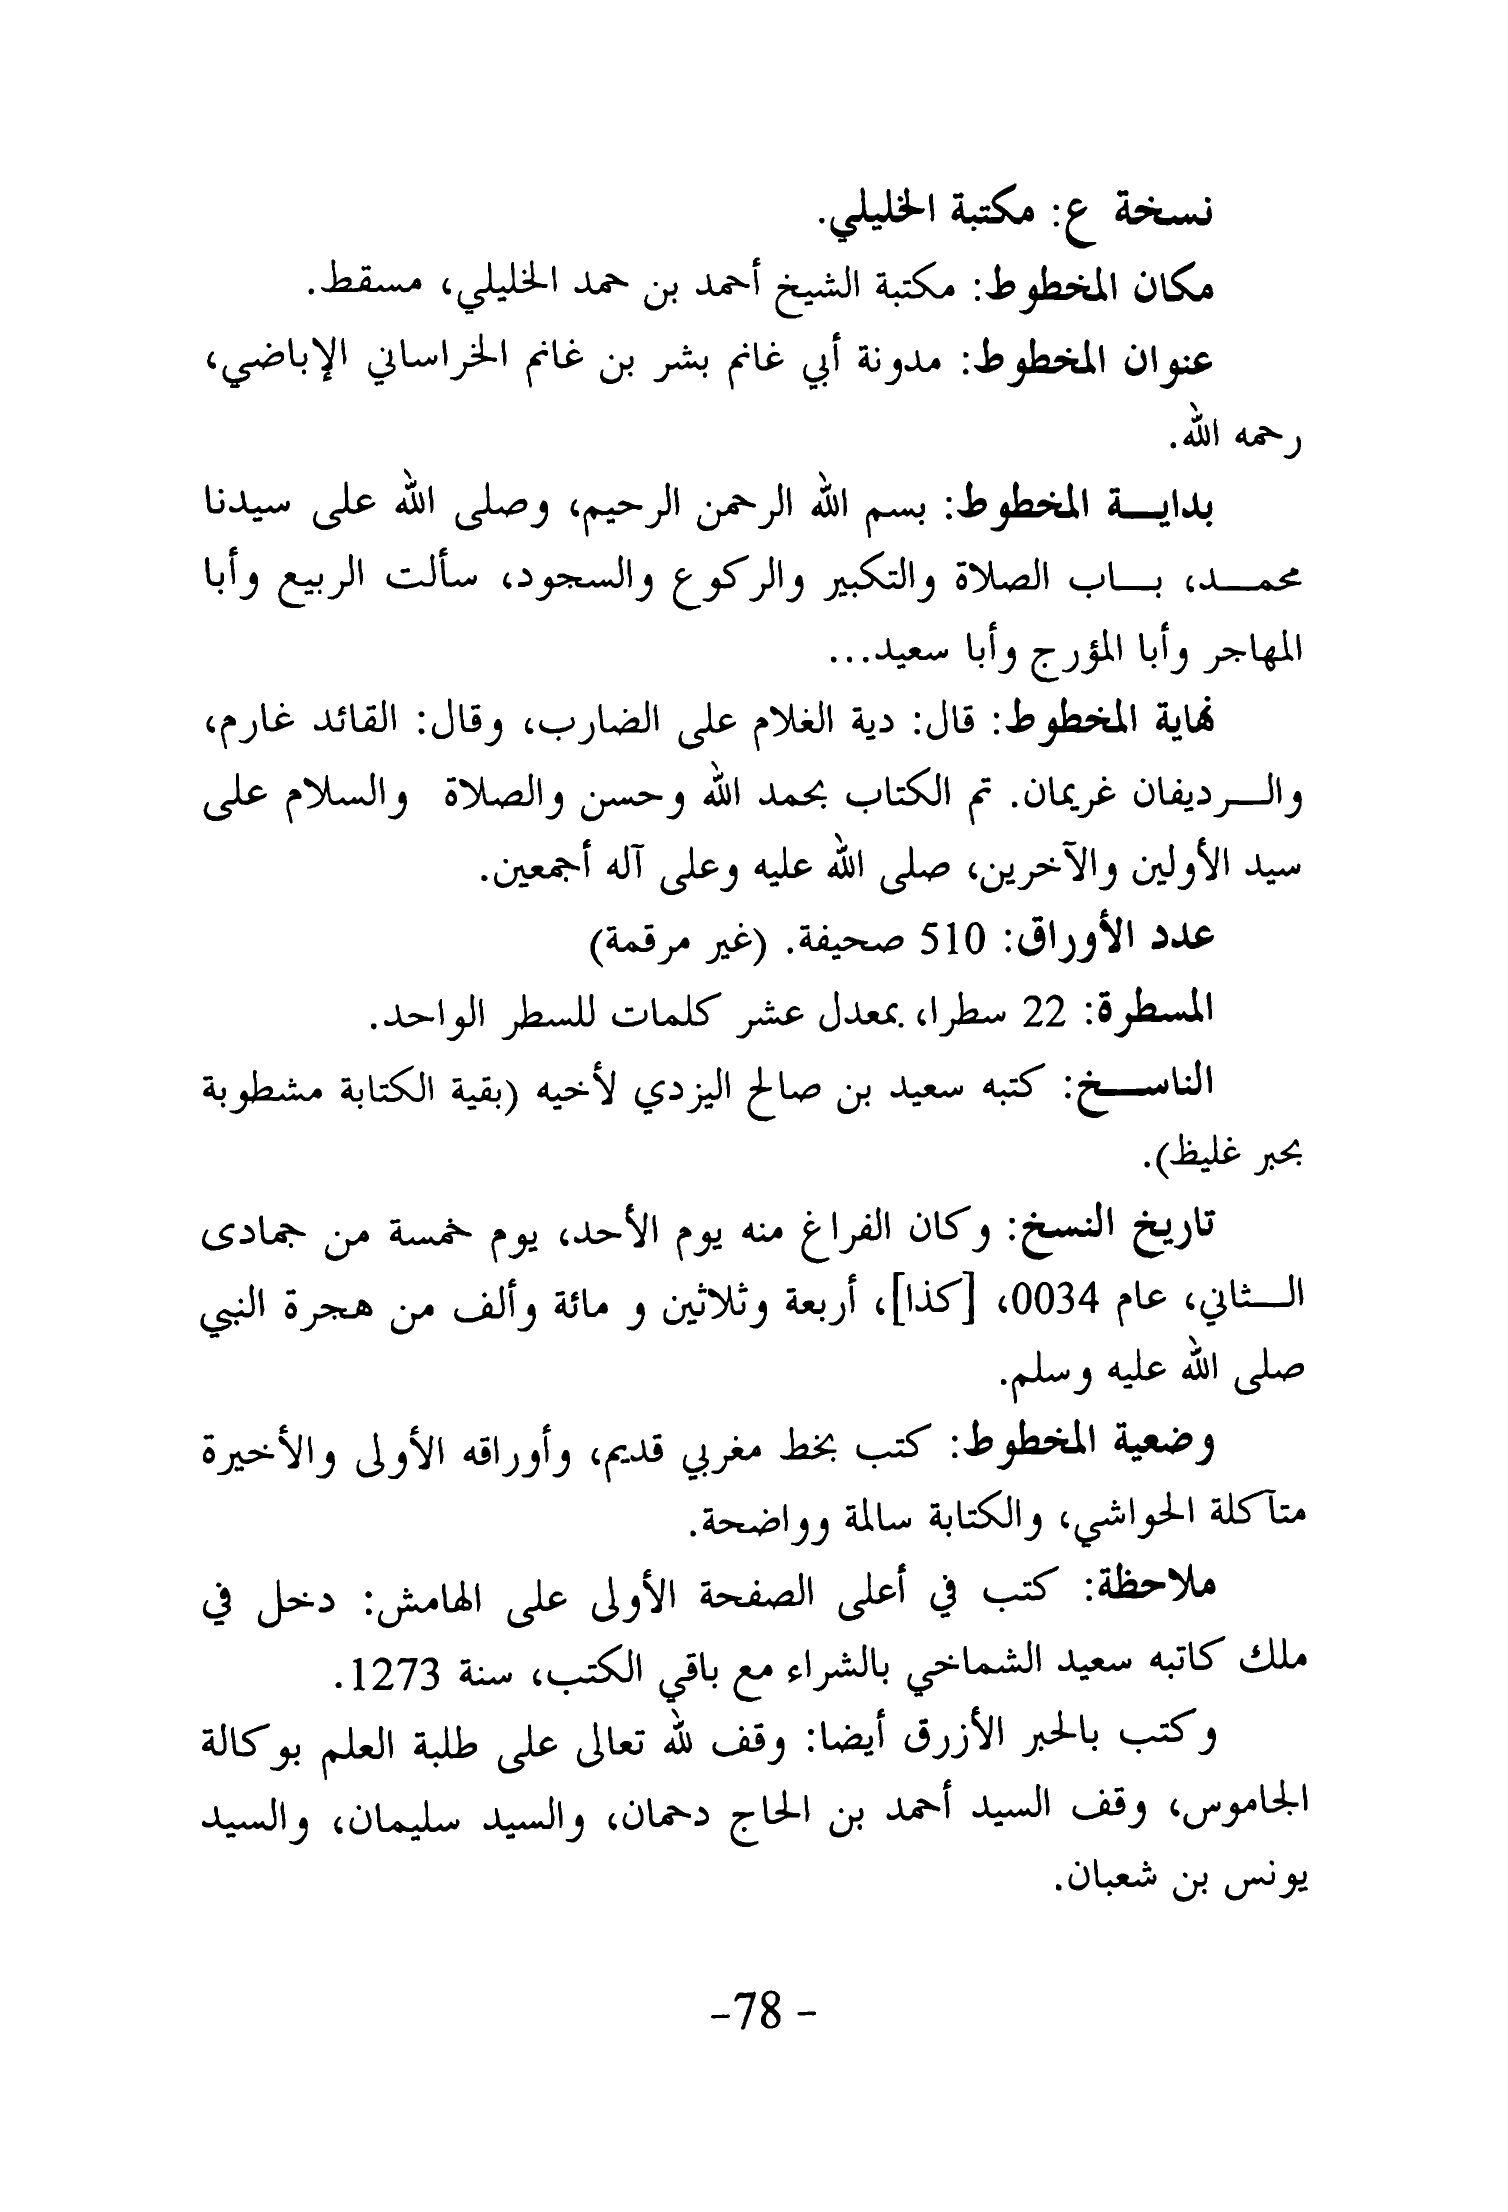 نسخة ع: مكتبة الخليلي.
مكان المخطوط: مكتبة الشيخ أحمد بن حمد الخليلي، مسقط.
عنوان المخطوط: مدونة أبي غانم بشر بن غانم الخراساني الإباضي،
رحمه الله.
بدايـــة المخطوط: بسم الله الرحمن الرحيم، وصلى الله على سيدنا
محمـــد، بـــاب الصلاة والتكبير والركوع والسجود، سألت الربيع وأبا
المهاجر وأبا المؤرج وأبا سعيد...
نهاية المخطوط: قال: دية الغلام على الضارب، وقال: القائد غارم،
والـــرديفان غريمان. تم الكتاب بحمد الله وحسن والصلاة والسلام على
سيد الأولين والآخرين، صلى الله عليه وعلى آله أجمعين.
عدد الأوراق: 510 صحيفة. (غير مرقمة)
المسطرة: 22 سطرا، بمعدل عشر كلمات للسطر الواحد.
الناســـخ: كتبه سعيد بن صالح اليزدي لأخيه (بقية الكتابة مشطوبة
بحبر غليظ).
تاريخ النسخ: وكان الفراغ منه يوم الأحد، يوم خمسة من جمادى
الـــثاني، عام 0034، [كذا]، أربعة وثلاثين و مائة وألف من هجرة النبي
صلى الله عليه وسلم.
وضعية المخطوط: كتب بخط مغربي قديم، وأوراقه الأولى والأخيرة
متآكلة الحواشي، والكتابة سالمة وواضحة.
ملاحظة: كتب في أعلى الصفحة الأولى على الهامش: دخل في
ملك كاتبه سعيد الشماخي بالشراء مع باقي الكتب، سنة 1273.
وكتب بالحبر الأزرق أيضا: وقف لله تعالى على طلبة العلم بوكالة
الجاموس، وقف السيد أحمد بن الحاج دحمان، والسيد سليمان، والسيد
يونس بن شعبان.
-78 -